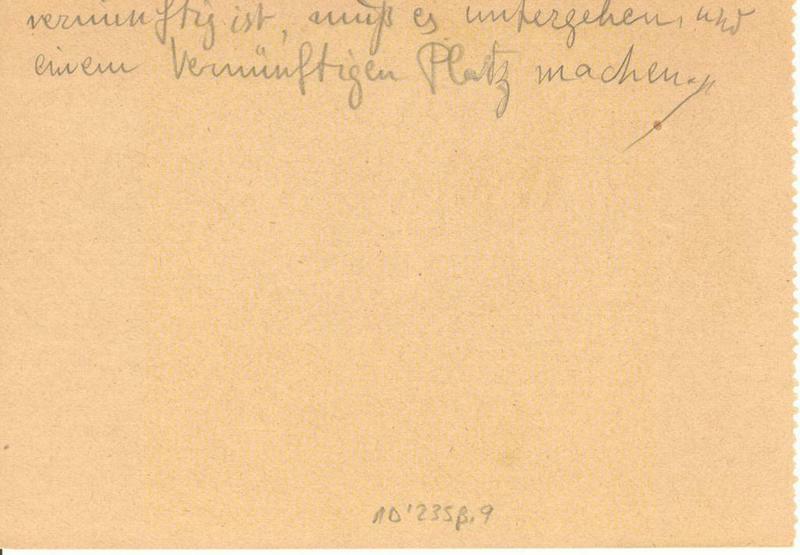 vernünftig ist, muß es untergehen, und
einem Vernünftigen Platz machen."
1D'235β,9